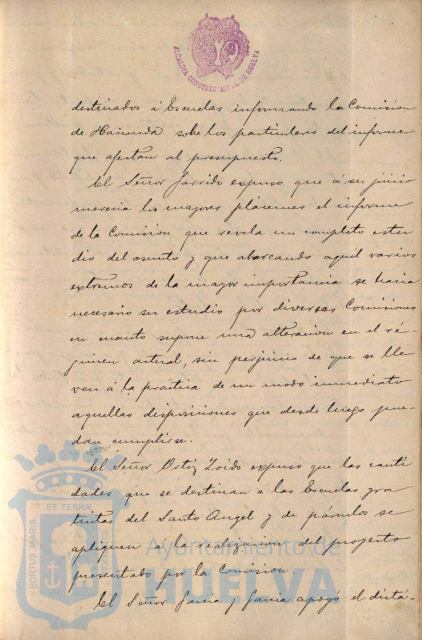 ALCALDIA CONSTITUCIONAL DE HUELVA
destinados á Escuelas informando la Comision
de Hacienda sobe los particulares del informe
que afectan al presupuesto.
El Señor Garrido expuso que á su juicio
merecia los mayores plácemes el informe
de la Comision que revela un completo estu
dio del asunto y que abarcando aquel varios
extremos de la mayor importancia se hacia
necesario su estudio por diversas Comisiones
en cuanto supone una alteracion en el ré-
gimen actual, sin perjuicio de que se lle
ven á la practica de un modo inmediato
aquellas disposiciones que desde luego pue-
dan cumplirse.
El Señor Ortiz Zoido expuso que las canti
dades que se destinan á las Escuelas gra
tuitas del Santo Angel y de párvulos se
apliquen a la realizacion del proyecto
presentado por la Comision
El Señor Garcia y Garcia apoyó el dictá-
PORTUS MARIS ET TERRA
Ayuntamiento de
HUELVA